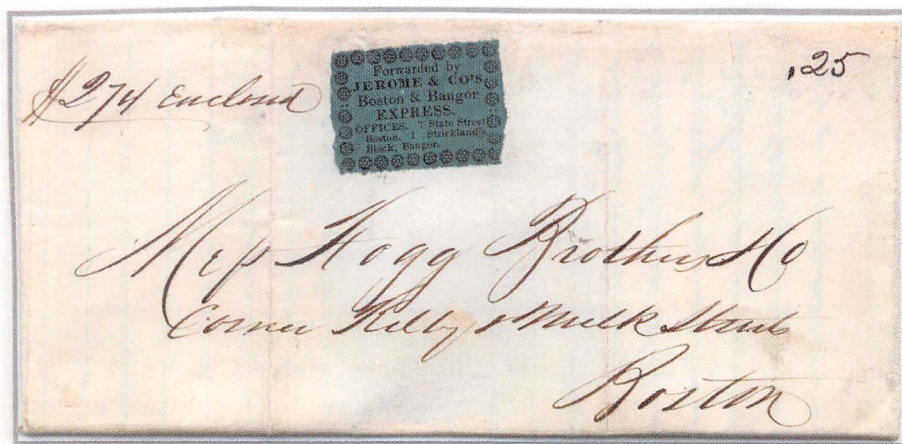 $274 Enclosed
Forwarded by
JEROME & CO'S
Boston & Bangor
EXPRESS.
OFFICES. 7 State Street
Boston, 1 Strickland's
Block, Bangor.
,25
Mess Hogg Brothers & Co
Corner Kilby & Milk Streets
Boston